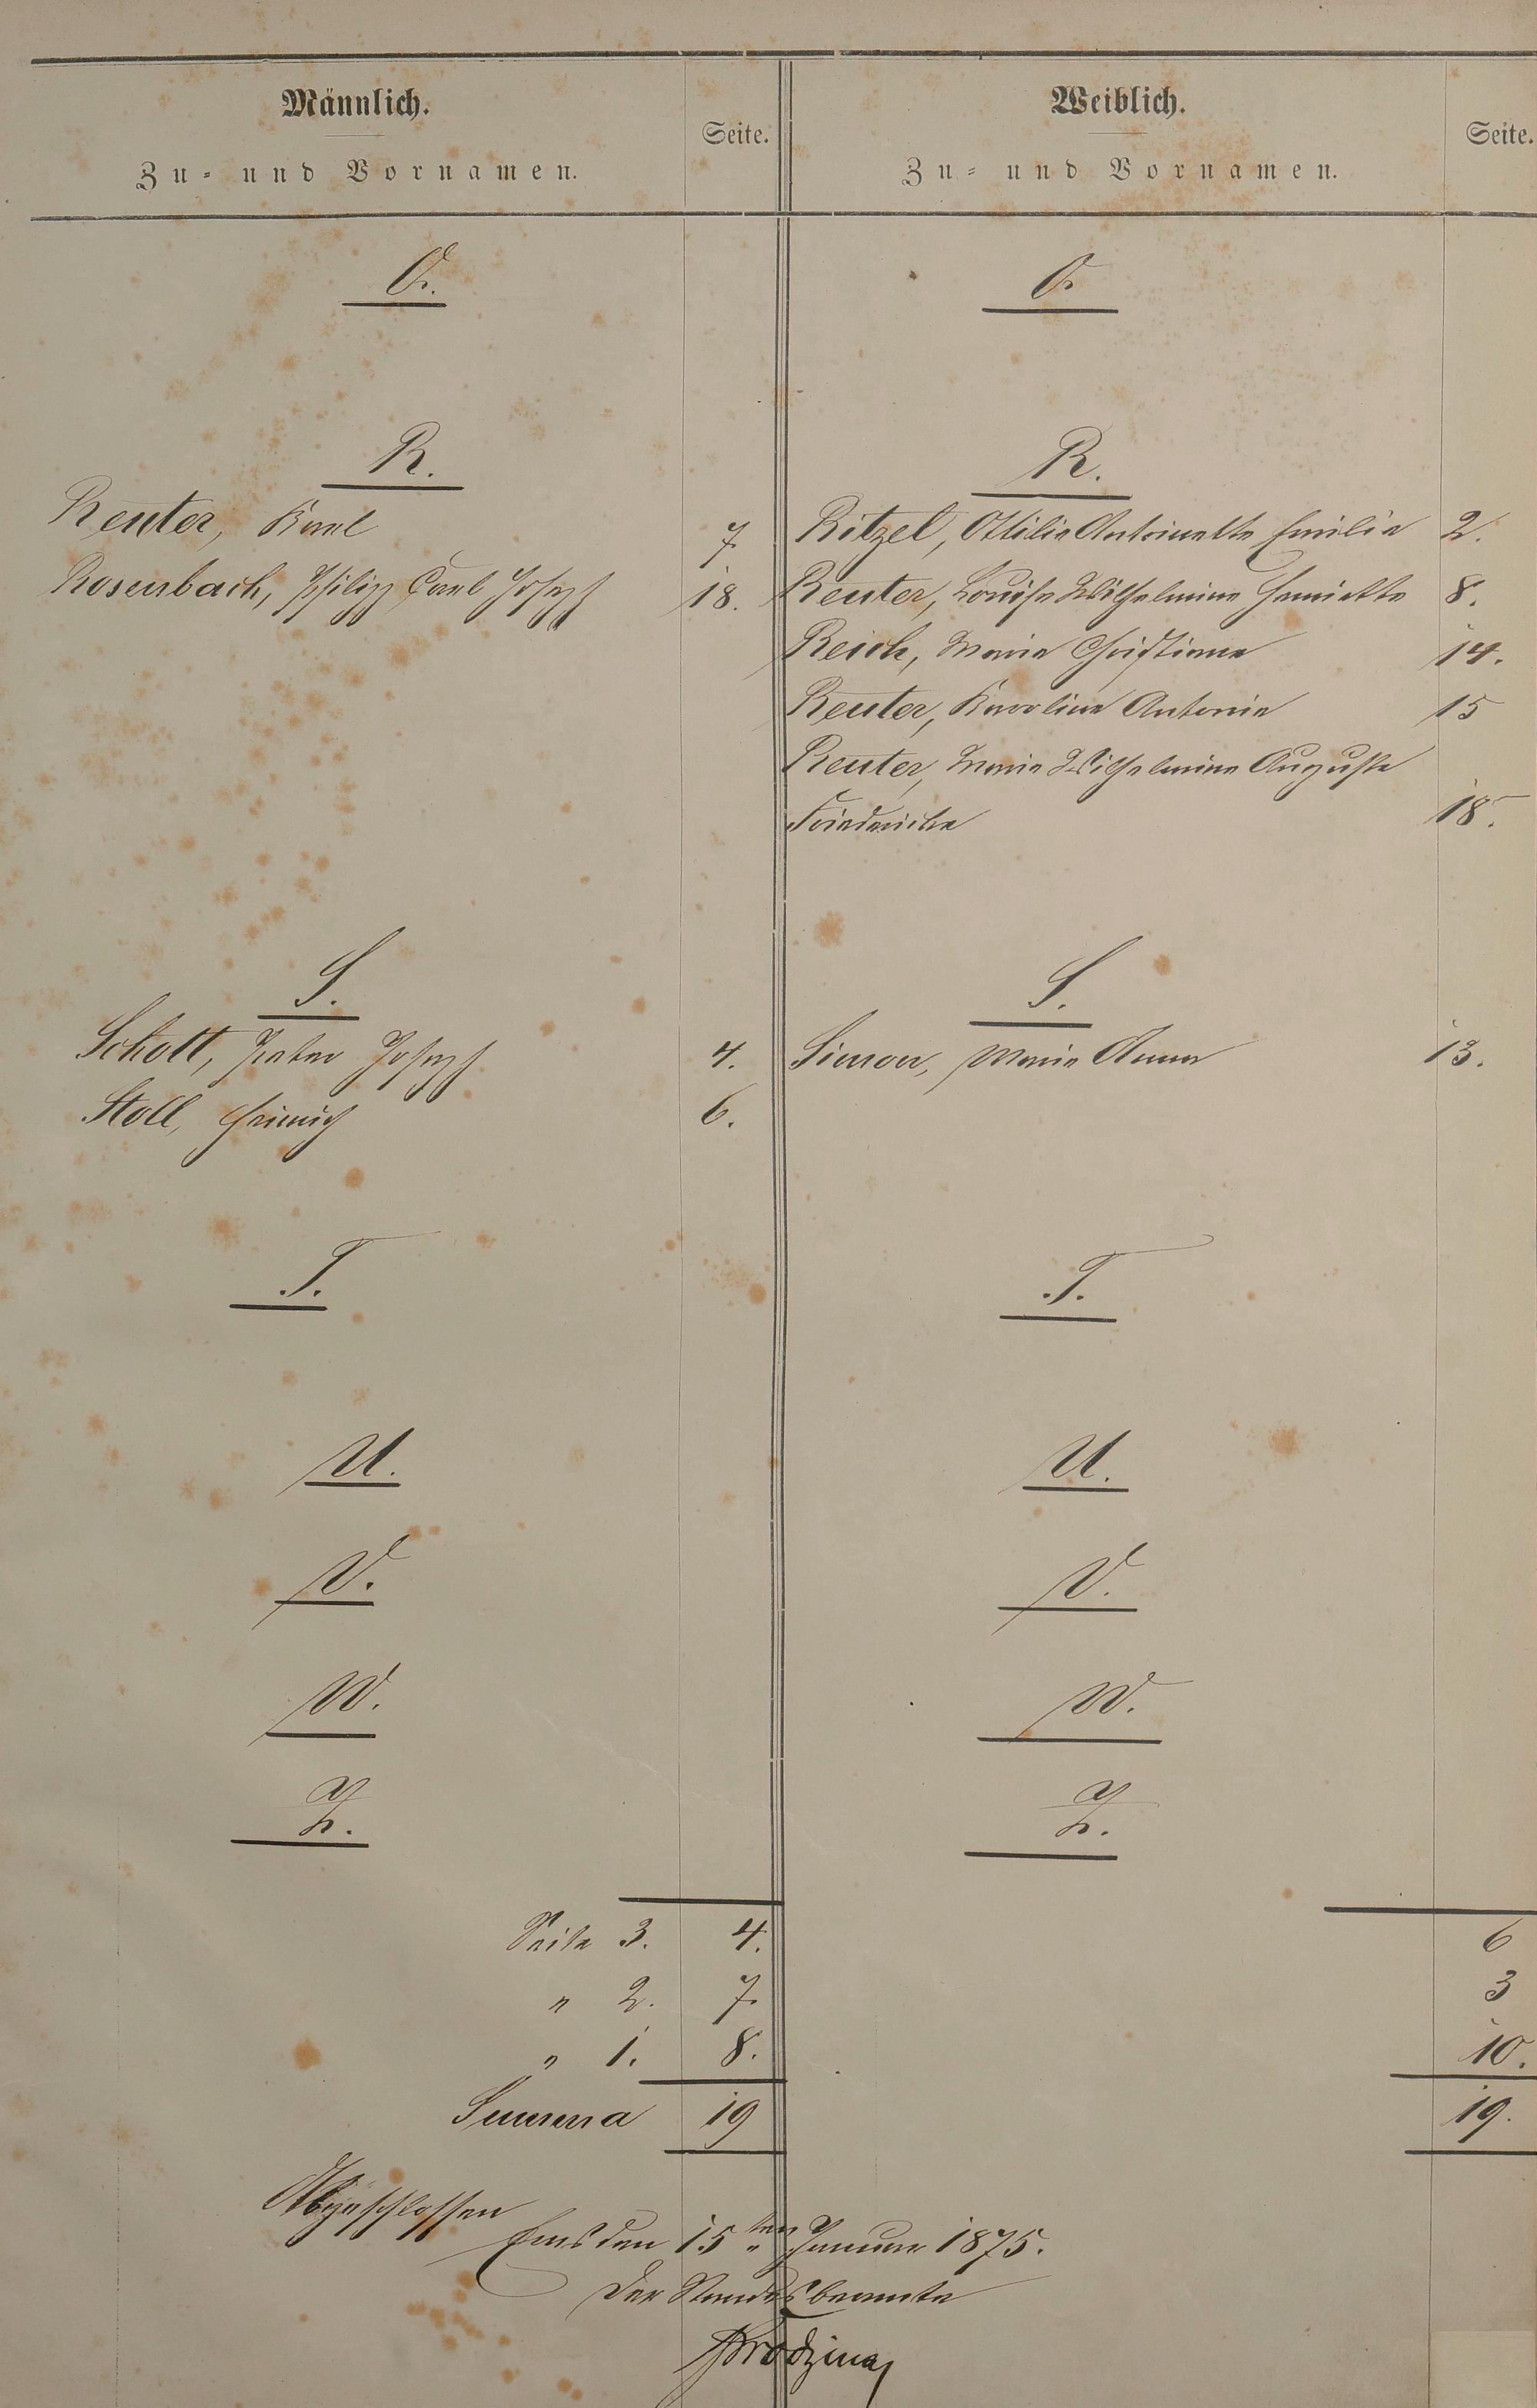 Männlich.
Zu- und Vornamen.
Seite.
Weiblich.
Zu- und Vornamen.
Seite.
O.
O.
R.
R.
Reuter, Karl 7.
Ritzel, Ottilie Antoinette Emilie 2.
Rosenbach, Philipp Carl Joseph 18.
Reuter, Louise Wilhelmine Henriette 8.
Reich, Marie Christiane 14.
Reuter, Karoline Antonie 15
Reuter, Marie Wilhelmine Auguste
Friedericke 18.
S.
S.
Schott, Peter Joseph 4.
Simon, Marie Anna 13.
Stoll, Heinrich 6.
T.
T.
U.
U.
V.
V.
W.
W.
Z.
Z.
Seite 3. 4. 6
" 2. 7. 3
" 1. 8. 10.
Summa 19 19.
Abgeschlossen
Ems den 15ten Januar 1875.
Der Standesbeamte